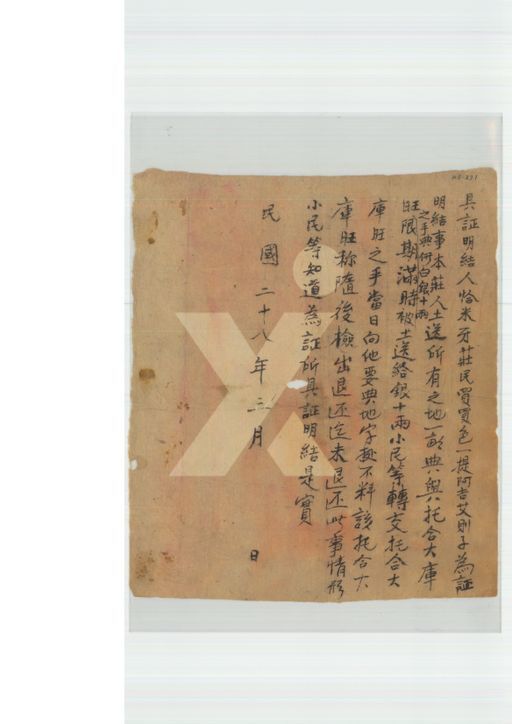 具証明結人恰米牙莊民買買色提阿吉艾則子為証
明結事本莊人土送所有之地一畝典與托合大庫
之手典価白銀十両
旺限期滿時被土送給銀十兩小民等轉交托合大
庫旺之手當日向他要典地字據不料該托合大
庫旺称隨後檢出退还迄未退还此事情形
小民等知道為証所具証明結是實
民國二十八年 月 日